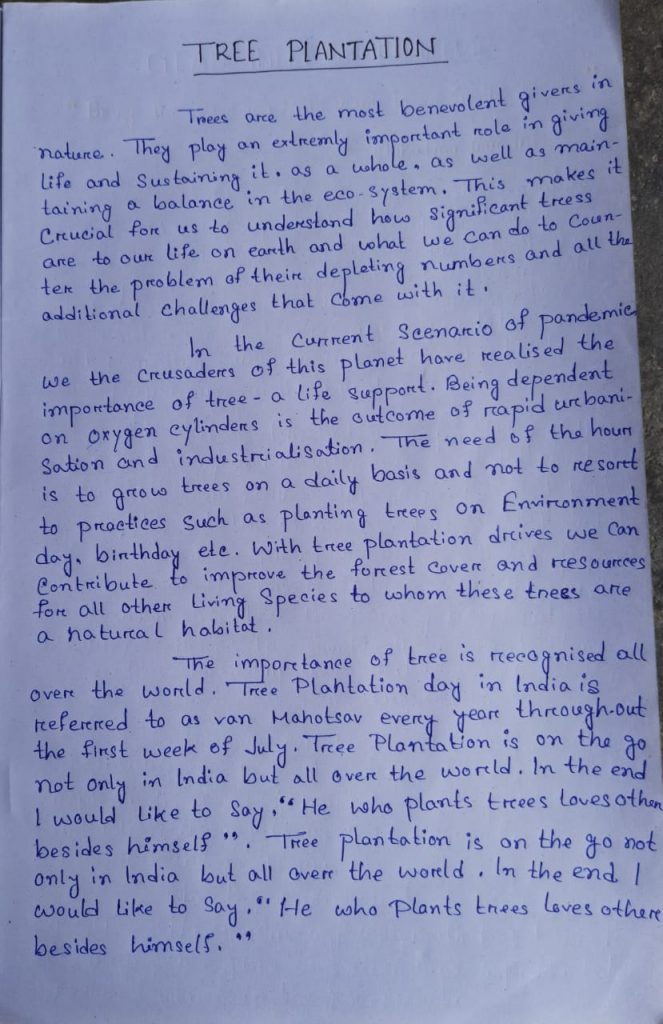 TREE PLANTATION
Trees are the most benevolent givers in
nature. They play an extremly important role in giving
life and sustaining it. as a whole. as well as main-
taining a balance in the eco-system. This makes it
Crucial for us to understand how significant tress
are to our life on earth and what we can do to coun-
ter the problem of their depleting numbers and all the
additional challenges that come with it.
In the current scenario of pandemic
we the crusaders of this planet have realised the
importance of tree - a life support. Being dependent
on oxygen cylinders is the outcome of rapid urbani-
sation and industrialisation. The need of the hour
is to grow trees on a daily basis and not to resort
to practices such as planting trees on Environment
day, birthday etc. With tree plantation drives we can
contribute to improve the forest cover and resources
for all other Living Species to whom these trees are
a natural habitat.
The importance of tree is recognised all
over the world. Tree Plantation day in India is
referred to as van Mahotsav every year through-out
the first week of July. Tree Plantation is on the go
not only in India but all over the world. In the end
I would like to say, "He who plants trees loves other
besides himself". Tree plantation is on the go not
only in India but all over the world. In the end I
would like to say. "He who Plants trees loves othere
besides himself."